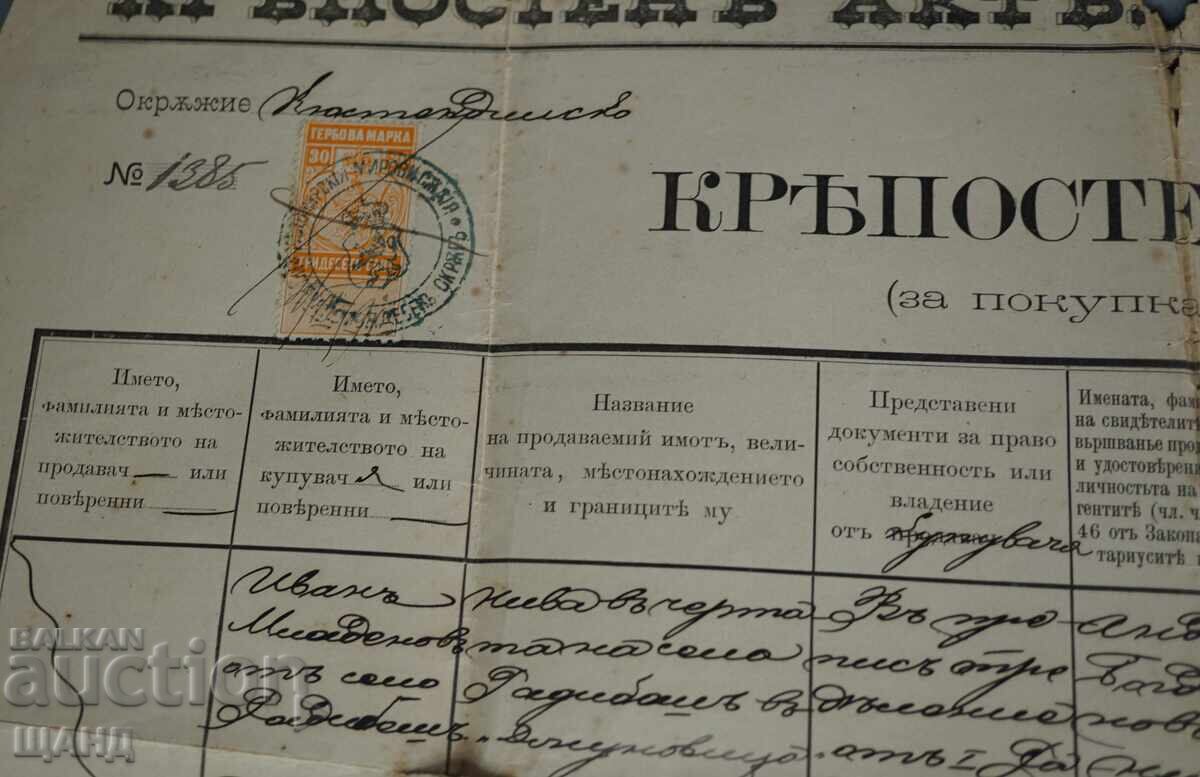 КРѢПОСТЕНЪ АКТЪ.
Окрѫжие Кюстендилско
№ 1385
ГЕРБОВА МАРКА
30
ТРИДЕСЕТ
МИРОВИ СѪДИЯ
ОКРѪЖ.
КРѢПОСТЕ
(за покупка
Името,
фамилията и мѣсто-
жителството на
продавач — или
повѣренни
Името,
фамилията и мѣсто-
жителството на
купувач а или
повѣренни
Название
на продаваемий имотъ, вели-
чината, мѣстонахождението
и границитѣ му
Представени
документи за право
собственность или
владение
отъ купувача
Имената, фам
на свидетелитѣ
вършванье прод
и удостовѣрени
личностьта на
гентитѣ (чл. ч
46 отъ Закона
тариуситѣ
Иванъ
Младеновъ
отъ село
Гадибашъ
нива въ черта
та на село
Гадибашъ въ
Въ про
пись
отъ I
нов
BALKAN
auction
ШАНД